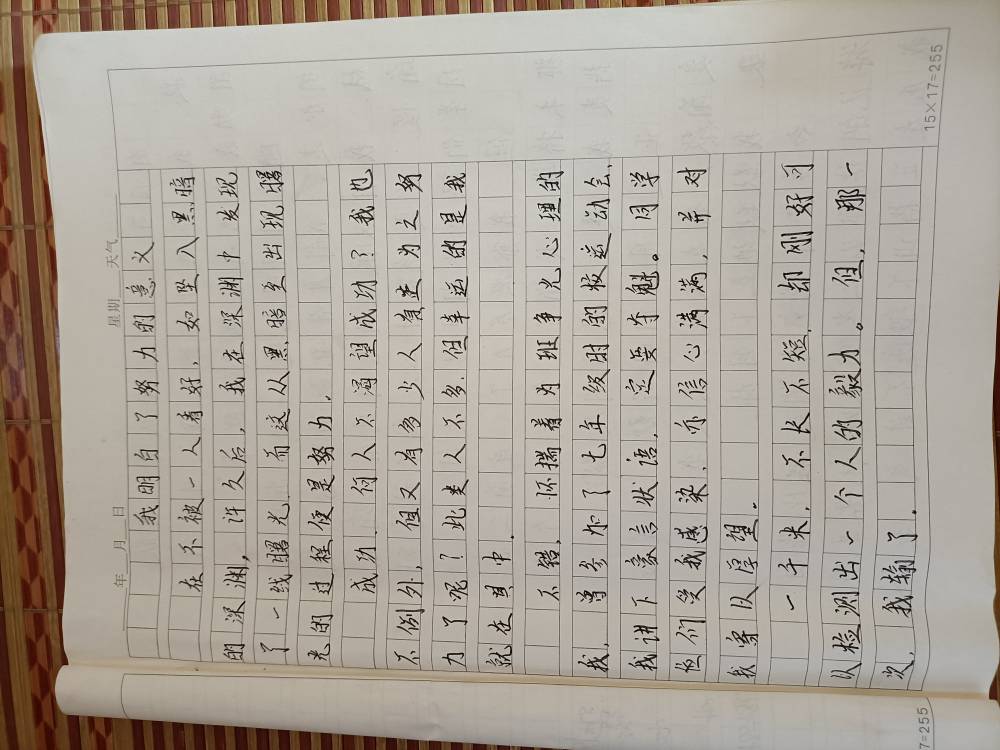 年 月 日 星期 天气
我明白了努力的意义
在不被一人看好，如坠入黑暗
的深渊，许久后，我在深渊中发现
了一线曙光.而这从黑暗至出现曙
光的过程便是努力.
成功.何人不渴望成功？我也
不例外，但又有多少人肯为之努
力了呢？此类人不多.但幸运的是我
就在其中.
不错，怀揣着为班争光心理的
我，曾参加了七年级时的校运动会，
我讲下豪言状语.定要夺魁。同学
们受我感染，亦信心满满，并对
我寄以厚望。
一千米，不长不短，却刚好可
以检测出一个人的毅力。但，那一
次，我输了.
15×17=255
7=255